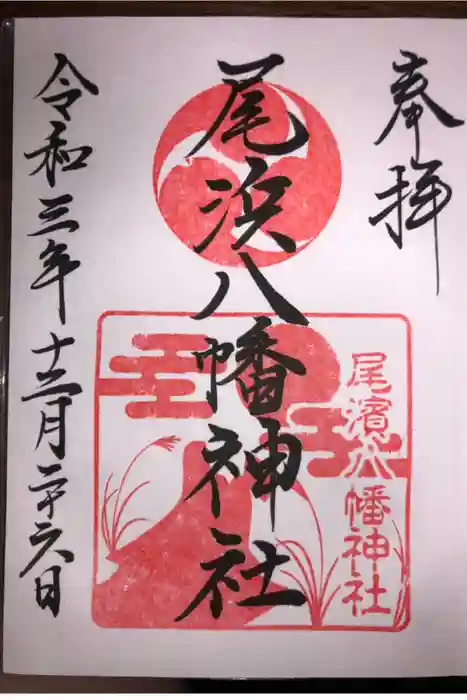 奉拝
尾浜八幡神社
尾濱八幡神社
令和三年十二月二十六日